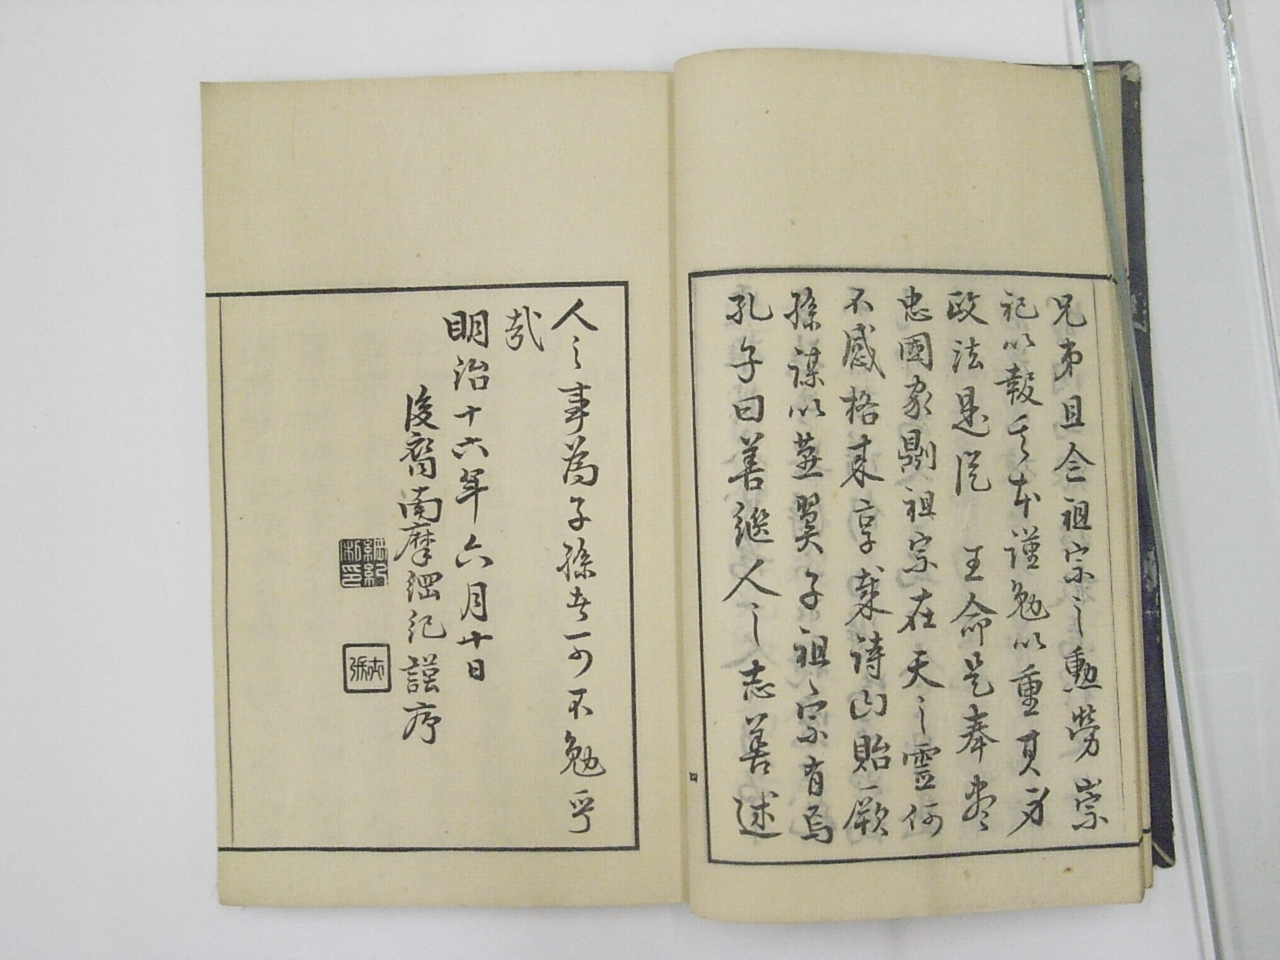 兄弟且念祖宗之勲勞崇
祀以報其本謹勉以重其身
政法是従　王命是奉盡
忠國家則祖宗在天之霊何
不感格来享哉詩曰貽厥
孫謀以燕翼子祖宗有焉
孔子曰善継人之志善述
人之事為子孫者可不勉乎
哉
明治十六年六月十日
後裔南摩綱紀謹序
綱紀